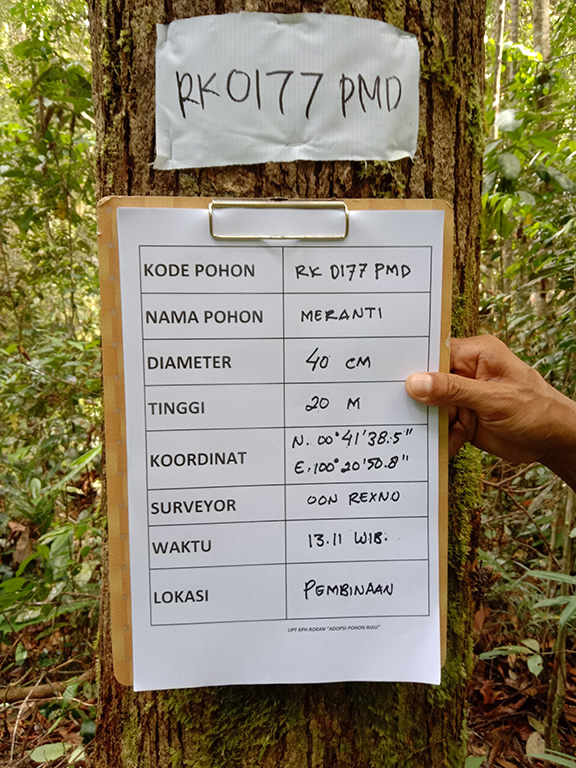 RK0177 PMD
KODE POHON RK 0177 PMD
NAMA POHON MERANTI
DIAMETER 40 CM
TINGGI 20 M
KOORDINAT N. 00°41'38.5"
E.100°20'50.8"
SURVEYOR OON REXNO
WAKTU 13.11 WIB.
LOKASI PEMBINAAN
UPT KPH ROKAN "ADOPSI POHON RIAU"